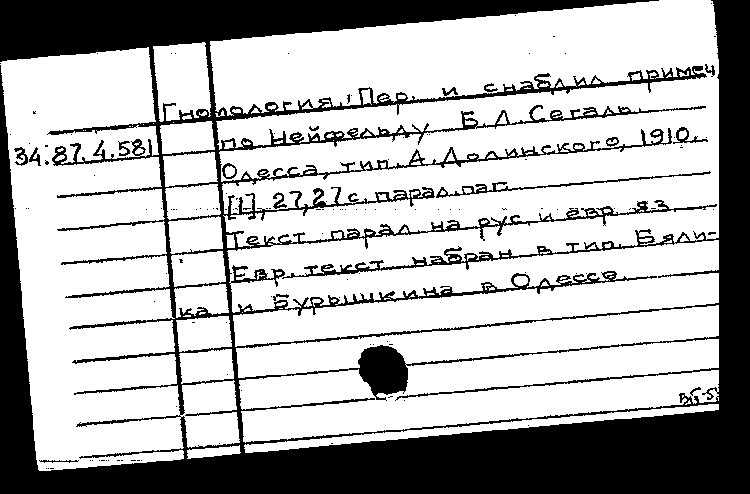 Гномология. Пер. и снабдил примеч.
34.87.4.581
по Нейфельду Б.Л.Сегаль.
Одесса, тип. А.Долинского, 1910.
[1], 27,27 с. парал.паг.
Текст парал на рус. и евр яз.
Евр. текст набран в тип. Бяли-
ка и Бурышкина в Одессе.